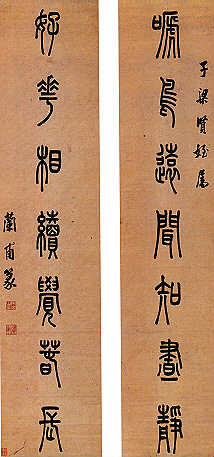 子梁賢姪屬
嗁鳥遠聞知晝靜
好華相續覺春長
蘭甫篆